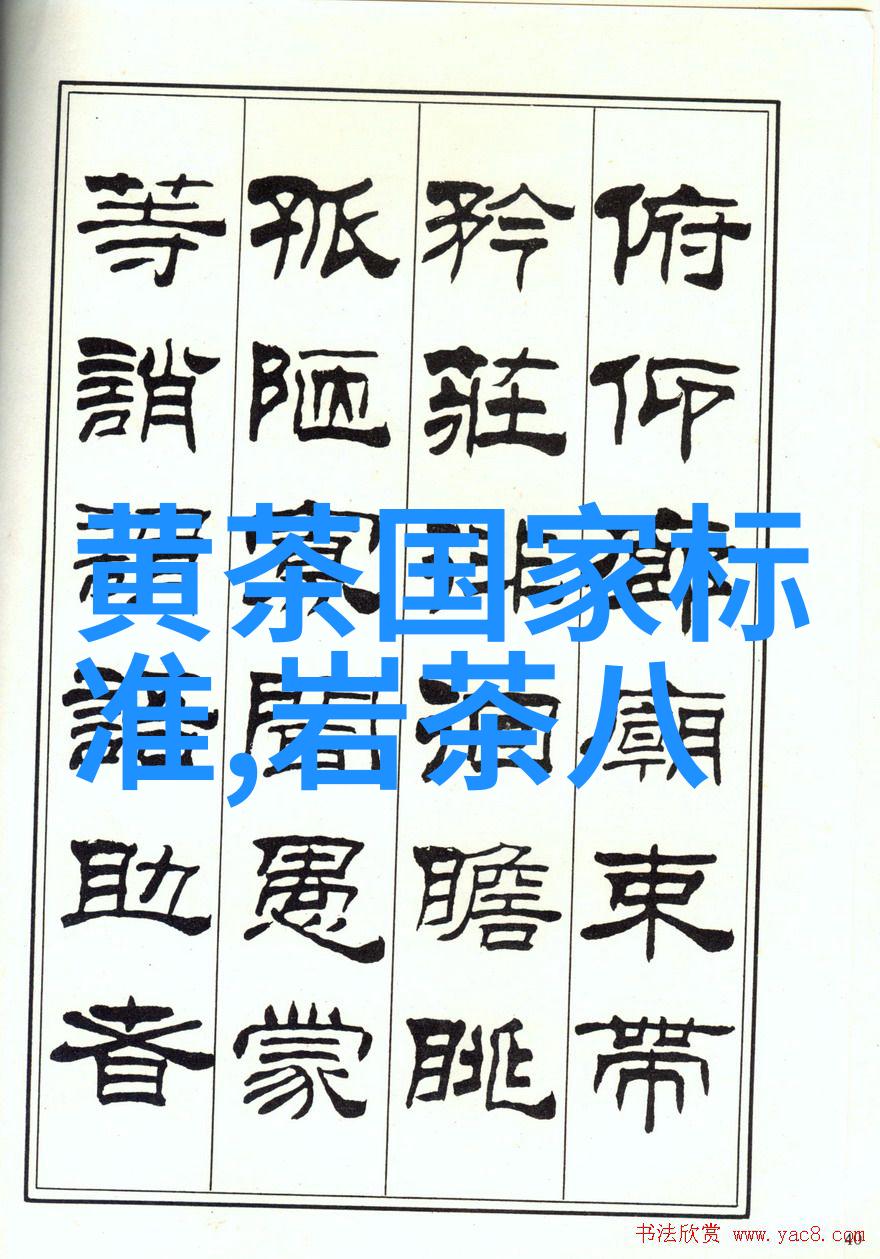 俯仰廊廟束帶
矜莊徘徊瞻眺
孤陋寡聞愚蒙
等誚謂語助者
黄茶国家标
准,岩茶八
40
书法欣赏 www.yac8.com